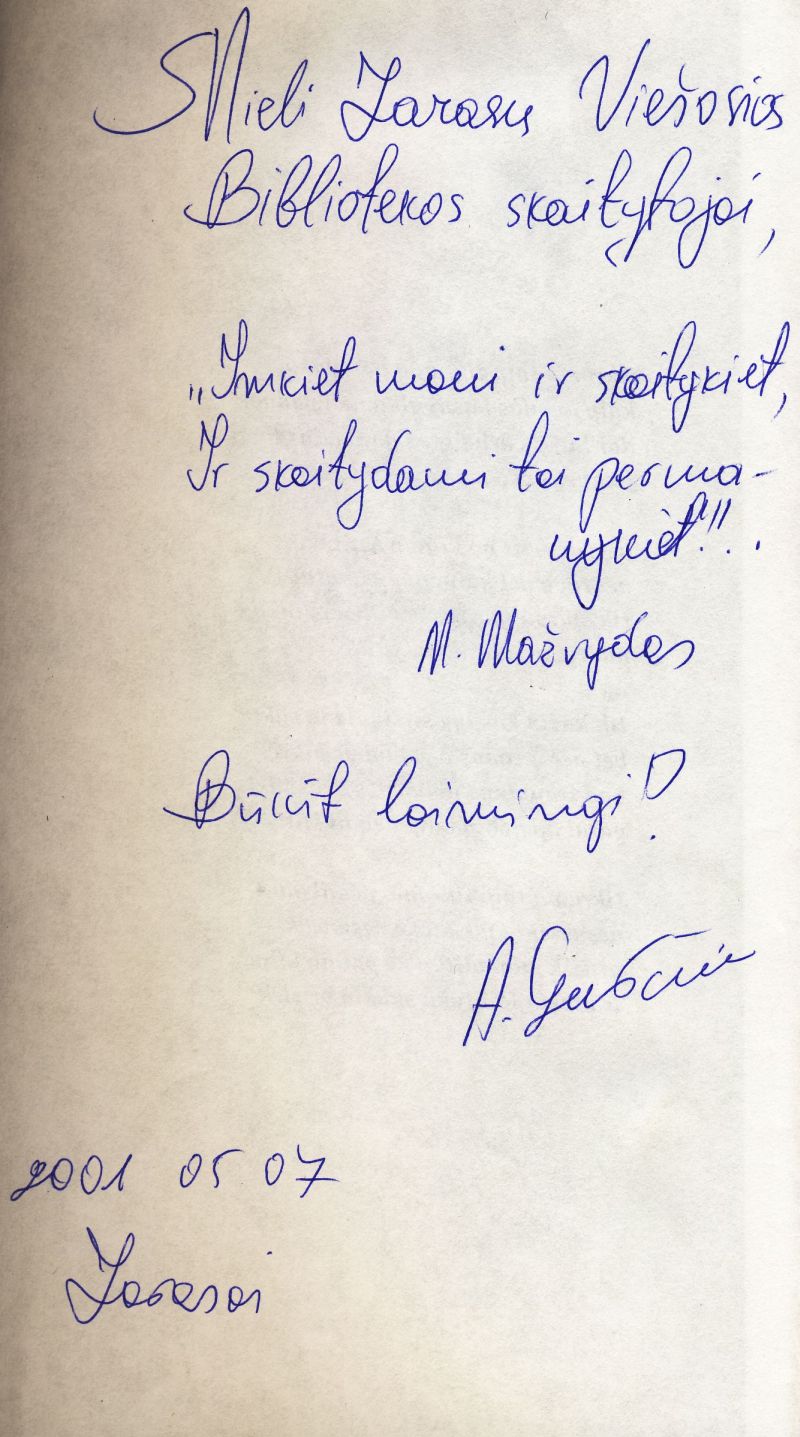 Mieli Zarasų Viešosios
Bibliotekos skaitytojai,
„Imkiet mani ir skaitykiet,
Ir skaitydami tai perma-
nykiet!!!..
M. Mažvydas
Būkit laimingi!
A.
2001 05 07
Zarasai